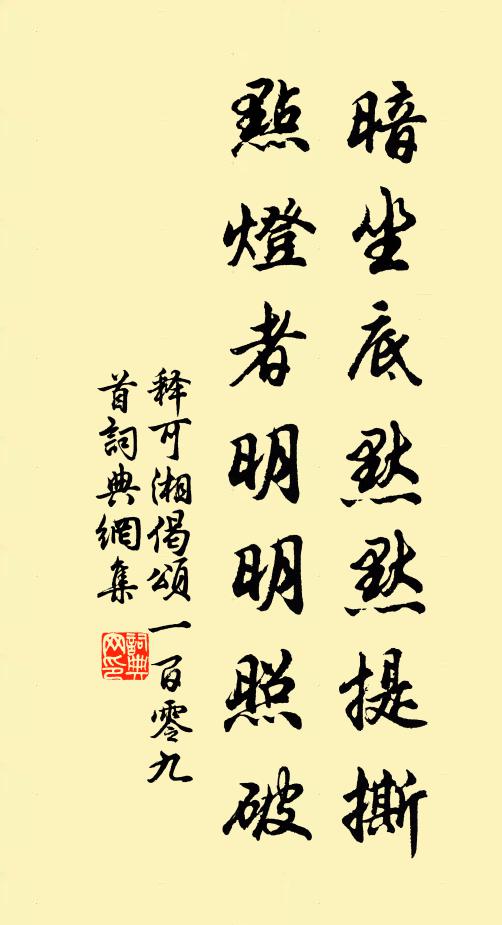 暗坐底默默提撕
點燈者明明照破
釋可湘偈頌一百零九
首詞典網集
詞典網印